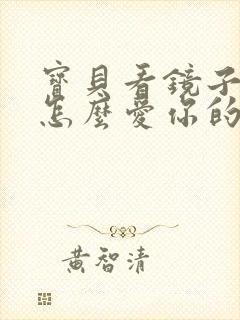 寶貝看鏡子
怎麼愛你的
黃智清